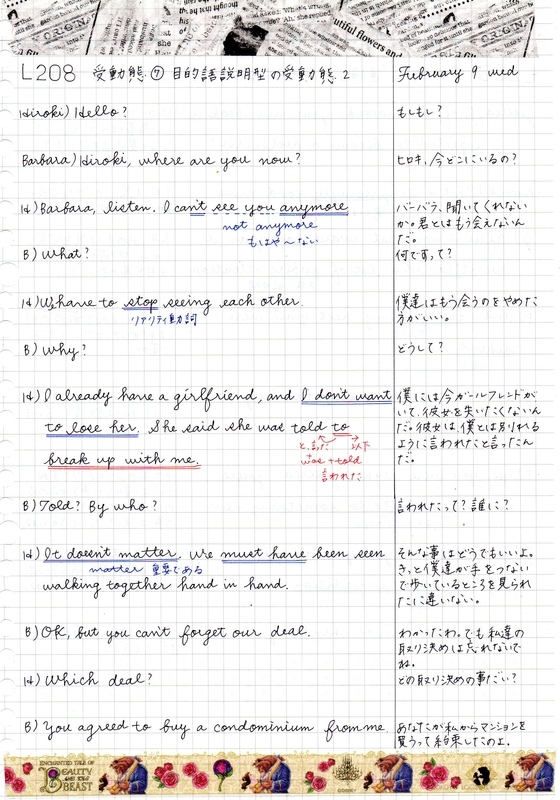 L208 受動態⑦目的語説明型の受動態 2 February 9 wed
Hiroki) Hello?
もしもし?
Barbara) Hiroki, where are you now?
ヒロキ、今どこにいるの?
H) Barbara, listen. I can't see you anymore
not anymore
もはや〜ない
バーバラ、聞いてくれない
か。君とはもう会えないん
だ。
B) What?
何ですって?
H) We have to stop seeing each other.
リアリティ動詞
僕達はもう会うのをやめた
方がいい。
B) Why?
どうして?
H) I already have a girlfriend, and I don't want
to lose her. She said she was told to
break up with me.
と言った
以下
was + told
言われた
僕には今ガールフレンドが
いて、彼女を失いたくないん
だ。彼女は、僕とは別れる
ように言われたと言ったん
だ。
B) Told? By who?
言われたって?誰に?
H) It doesn't matter. We must have been seen
matter 重要である
walking together hand in hand.
そんな事はどうでもいいよ。
きっと僕達が手をつない
で歩いているところを見られ
たに違いない。
B) OK, but you can't forget our deal.
わかったわ。でも私達の
取り決めは忘れないで
ね。
H) Which deal?
どの取り決めの事だい?
B) You agreed to buy a condominium from me.
あなたが私からマンションを
買うって約束したのよ。
ENCHANTED TALE OF
BEAUTY
AND THE
BEAST